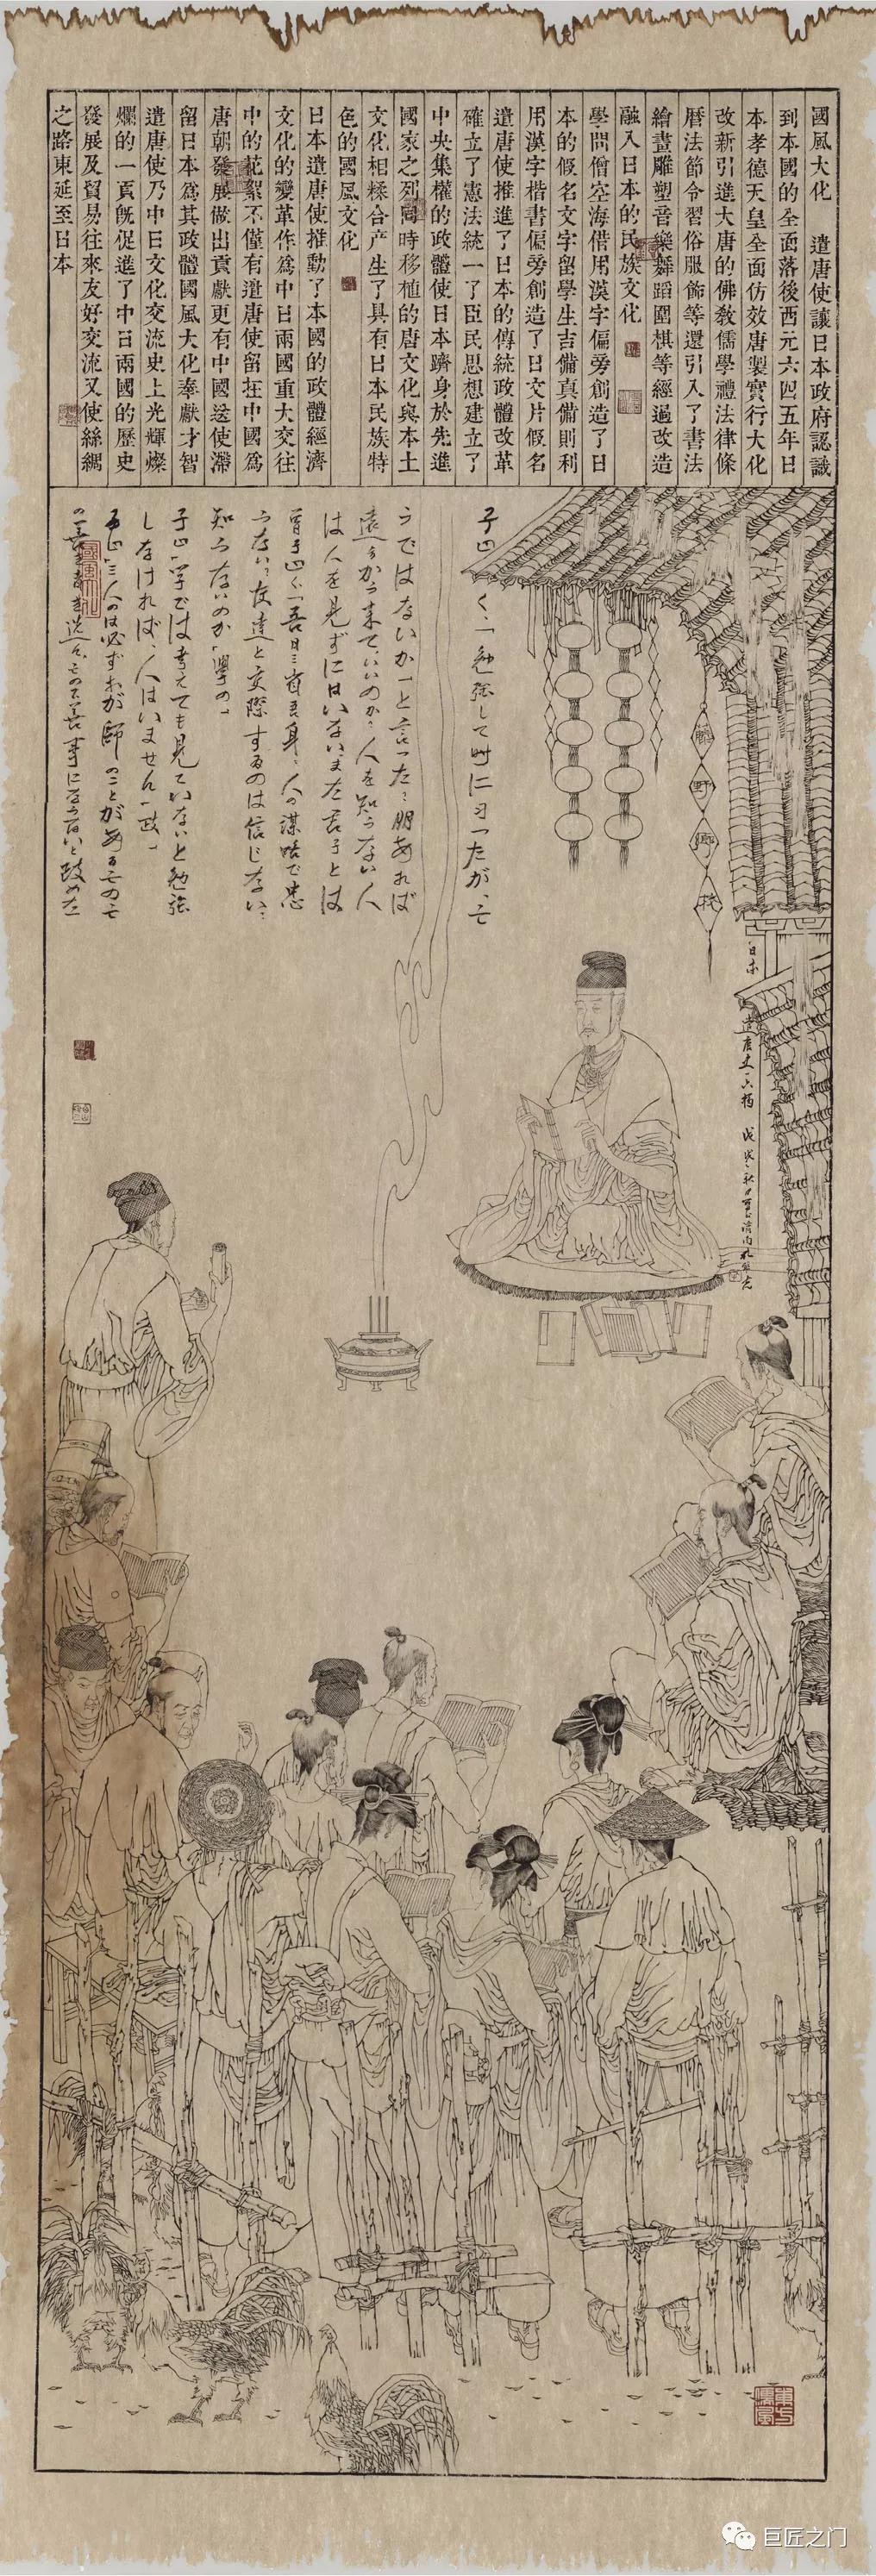 國風大化　遣唐使讓日本政府認識
到本國的全面落後西元六四五年日
本孝德天皇全面仿效唐製實行大化
改新引進大唐的佛教儒學禮法律條
曆法節令習俗服飾等還引入了書法
繪畫雕塑音樂舞蹈圍棋等經過改造
融入日本的民族文化
學問僧空海借用漢字偏旁創造了日
本的假名文字留學生吉備真備則利
用漢字楷書偏旁創造了日文片假名
遣唐使推進了日本的傳統政體改革
確立了憲法統一了臣民思想建立了
中央集權的政體使日本躋身於先進
國家之列同時移植的唐文化與本土
文化相糅合产生了具有日本民族特
色的國風文化
日本遣唐使推動了本國的政體經濟
文化的變革作為中日兩國重大交往
中的花絮不僅有遣唐使留在中國為
唐朝發展做出貢獻更有中國送使滯
留日本為其政體國風大化奉獻才智
遣唐使乃中日文化交流史上光輝燦
爛的一頁既促進了中日兩國的歷史
發展及貿易往來友好交流又使絲綢
之路東延至日本
子曰く、「勉強して時に习ったが、そ
うではないか」と言った：朋あれば
遠くから来て、いいのか：人を知らない人
は人を見ずにはいない、また君子とは
曾子曰く「吾日三省吾身：人の謀略で忠
うない：友達と交際するのは信じない：
知らないのか」學の」
子曰、「学では考えても見ていないと勉強
しなければ、人はいません」政」
子曰、「三人のは必ずわが師のことがあるその
日本
遣唐史
戊戌秋月
巨匠之门